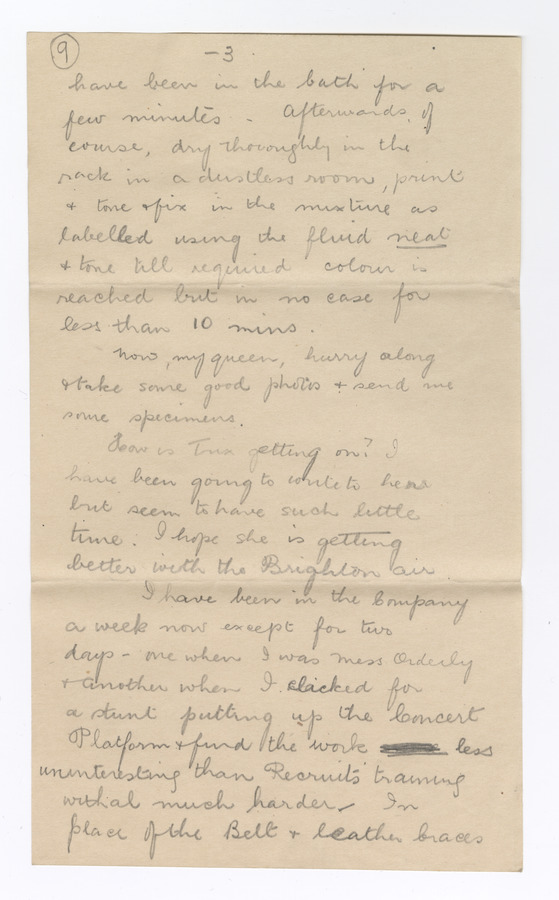 9
- 3 .
have been in the bath for a
few minutes - Afterwards, of
course, dry thoroughly in the
rack in a dustless room, print
+ tone + fix in the mixture as
labelled using the fluid neat
+ tone till required colour is
reached but in no case for
less than 10 mins.
Now, my queen, hurry along
+ take some good photos + send me
some specimens.
How is Trix getting on? I
have been going to write to her
but seem to have such little
time. I hope she is getting
better with the Brighton air
I have been in the Company
a week now except for two
days - one when I was Mess Orderly
+ another when I clicked for
a stunt putting up the Concert
Platform + find the work less
uninteresting than Recruits' training
withal much harder. In
place of the Belt + leather braces